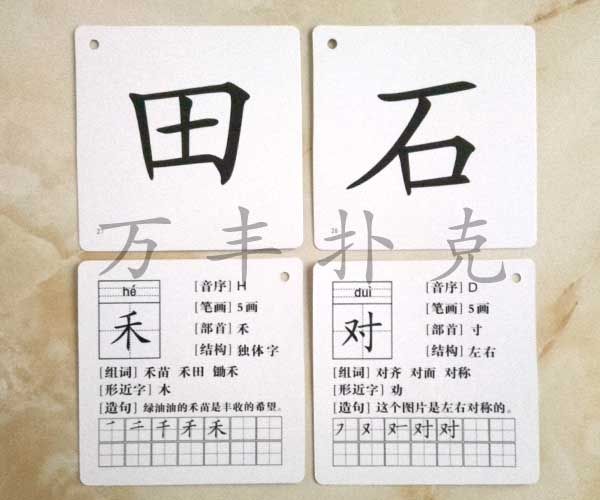 田
石
27
26
万丰扑克
hé
禾
[音序] H
[笔画] 5画
[部首] 禾
[结构] 独体字
[组词] 禾苗 禾田 锄禾
[形近字] 木
[造句] 绿油油的禾苗是丰收的希望。
一 二 千 禾 禾
duì
对
[音序] D
[笔画] 5画
[部首] 寸
[结构] 左右
[组词] 对齐 对面 对称
[形近字] 劝
[造句] 这个图片是左右对称的。
㇇ 又 对 对